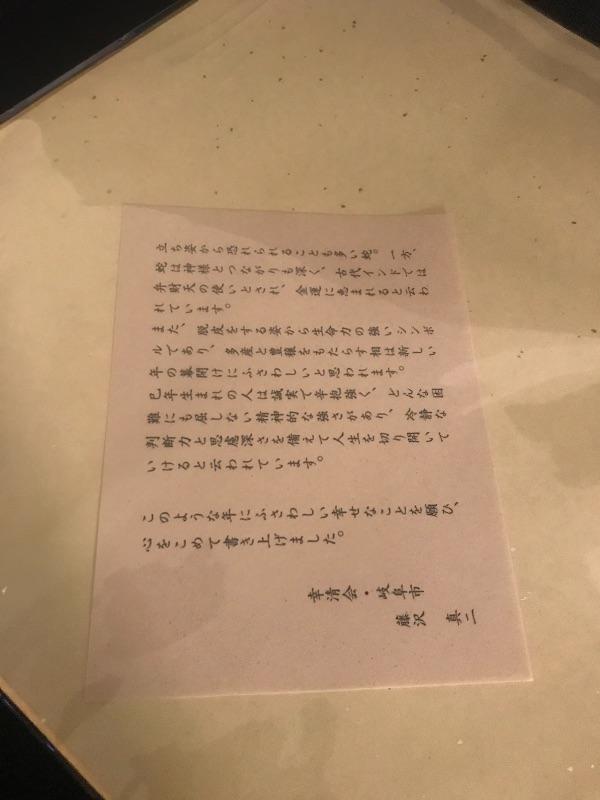 立ち姿から恐れられることも多い蛇。一方、
蛇は神様とつながりも深く、古代インドでは
弁財天の使いとされ、金運に恵まれると云わ
れています。
また、脱皮をする姿から生命力の強いシンボ
ルであり、多産と豊穣をもたらす相は新しい
年の幕開けにふさわしいと思われます。
巳年生まれの人は誠実で辛抱強く、どんな困
難にも屈しない精神的な強さがあり、冷静な
判断力と思慮深さを備えて人生を切り開いて
いけると云われています。
このような年にふさわしい幸せなことを願ひ、
心をこめて書き上げました。
幸清会・岐阜市
藤沢 真二